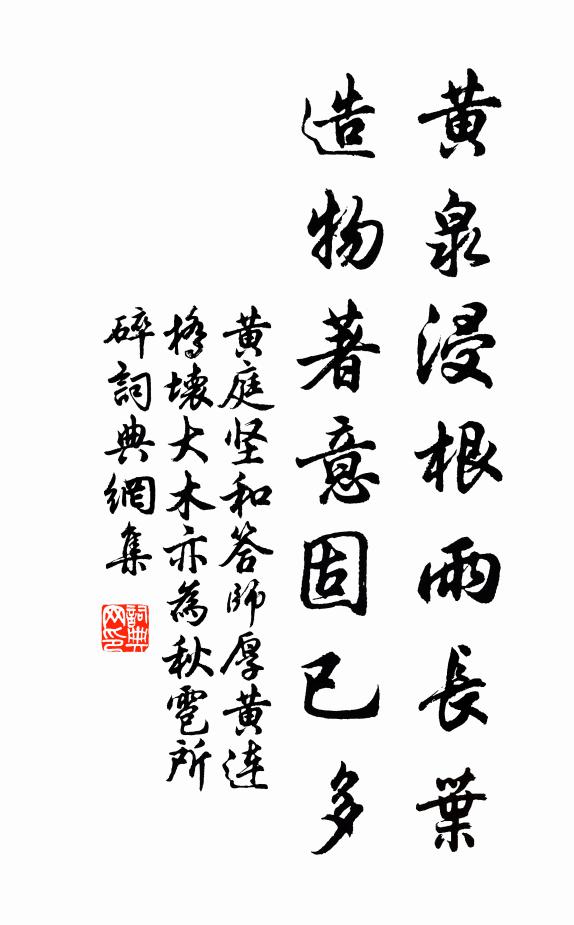 黃泉浸根雨長葉
造物著意固已多
黄庭坚和答師厚黄连
橋壊大木亦為秋雹所
碎詞典網集
詞典网印